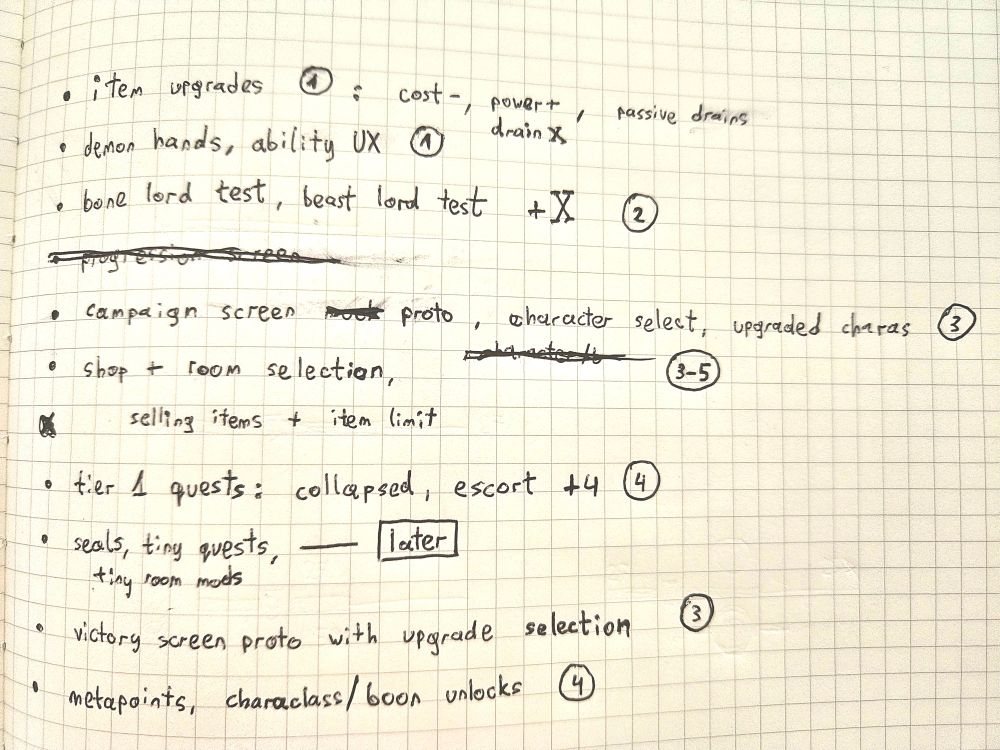 • item upgrades ① : cost-, power+, passive drains
drain x
• demon hands, ability UX ①
• bone lord test, beast lord test +X ②
• progression screen
• campaign screen proto, character select, upgraded charas ③
• shop + room selection, ③-⑤
selling items + item limit
• tier 1 quests: collapsed, escort +4 ④
• seals, tiny quests, — later
tiny room mods
• victory screen proto with upgrade selection ③
• metapoints, characlass/boon unlocks ④